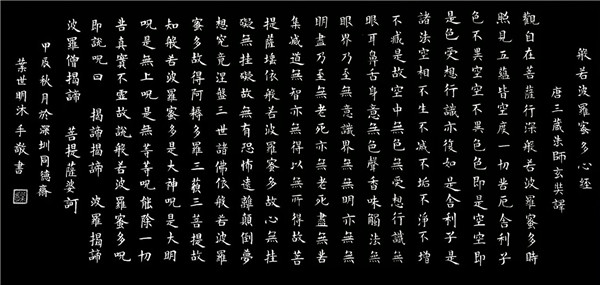 般若波羅蜜多心經
唐三藏法師玄奘譯
觀自在菩薩行深般若波羅蜜多時
照見五蘊皆空度一切苦厄舍利子
色不異空空不異色色即是空空即
是色受想行識亦復如是舍利子是
諸法空相不生不滅不垢不淨不增
不減是故空中無色無受想行識無
眼耳鼻舌身意無色聲香味觸法無
眼界乃至無意識界無無明亦無無
明盡乃至無老死亦無老死盡無苦
集滅道無智亦無得以無所得故菩
提薩埵依般若波羅蜜多故心無挂
礙無挂礙故無有恐怖遠離顛倒夢
想究竟涅槃三世諸佛依般若波羅
蜜多故得阿耨多羅三藐三菩提故
知般若波羅蜜多是大神呪是大明
呪是無上呪是無等等呪能除一切
苦真實不虛故說般若波羅蜜多呪
即說呪曰 揭諦揭諦 波羅揭諦
波羅僧揭諦 菩提薩婆訶
甲辰秋月於深圳同德齋
葉世明沐手敬書